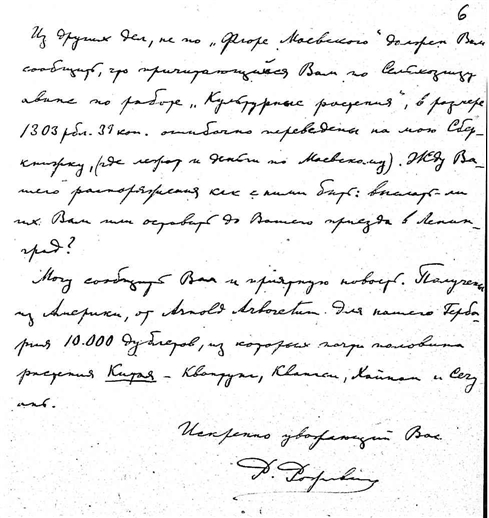 6
Из других дел, не по „Флоре Маевского" должен Вам
сообщить, что причитающийся Вам по Сельхозгизу
аванс по работе „Культурные растения", в размере
1303 рбл. 37 коп. ошибочно переведены на мою Сбер-
книжку, (где лежат и деньги по Маевскому). Жду Ва-
шего распоряжения как с ними быть: выслать-ли
их Вам или оставить до Вашего приезда в Ленин-
град?
Могу сообщить Вам и приятную новость. Получены
из Америки, от Arnold Arboretum для нашего Герба-
рия 10.000 дублетов, из которых почти половина
растения Китая – Квантунг, Кванси, Хайнан и Сечу
ань.
Искренно уважающий Вас
Р. Рожевиц